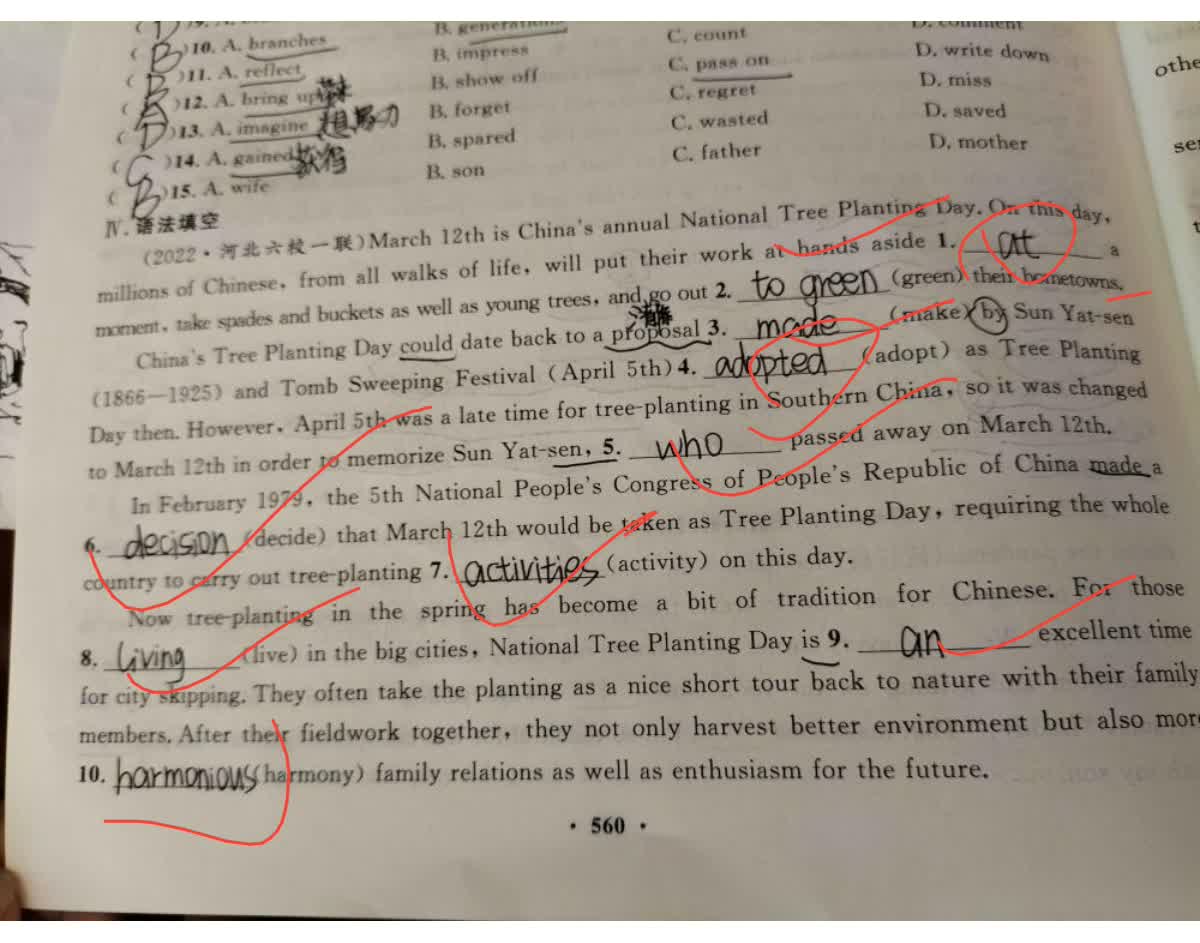 B. generation
D. comment
(B)10. A. branches B. impress C. count D. write down
(B)11. A. reflect B. show off C. pass on D. miss
(A)12. A. bring up B. forget C. regret D. saved
(D)13. A. imagine 想 努力 B. spared C. wasted D. mother
(C)14. A. gained 获得 B. son C. father
(B)15. A. wife
Ⅳ. 语法填空
(2022·河北六校一联)March 12th is China's annual National Tree Planting Day. On this day,
millions of Chinese, from all walks of life, will put their work at hands aside 1. at a
moment, take spades and buckets as well as young trees, and go out 2. to green (green) their hometowns.
China's Tree Planting Day could date back to a proposal 3. made (make) by Sun Yat-sen
(1866—1925) and Tomb Sweeping Festival (April 5th) 4. adopted (adopt) as Tree Planting
Day then. However, April 5th was a late time for tree-planting in Southern China, so it was changed
to March 12th in order to memorize Sun Yat-sen, 5. who passed away on March 12th.
In February 1979, the 5th National People's Congress of People's Republic of China made a
6. decision (decide) that March 12th would be taken as Tree Planting Day, requiring the whole
country to carry out tree-planting 7. activities (activity) on this day.
Now tree-planting in the spring has become a bit of tradition for Chinese. For those
8. living (live) in the big cities, National Tree Planting Day is 9. an excellent time
for city skipping. They often take the planting as a nice short tour back to nature with their family
members. After their fieldwork together, they not only harvest better environment but also more
10. harmonious (harmony) family relations as well as enthusiasm for the future.
· 560 ·